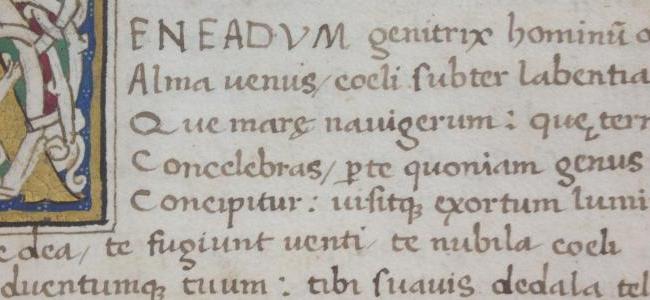 ENEADVM genitrix hominū o
Alma uenus/ coeli subter labentia
Que marę nauigerum: quę terr
Concelebras/ ꝑte quoniam genus
Concipitur: uisitqꝫ exortum lumi
e dea/ te fugiunt uenti/ te nubila coeli
duentumqꝫ tuum: tibi suauis dedala tel